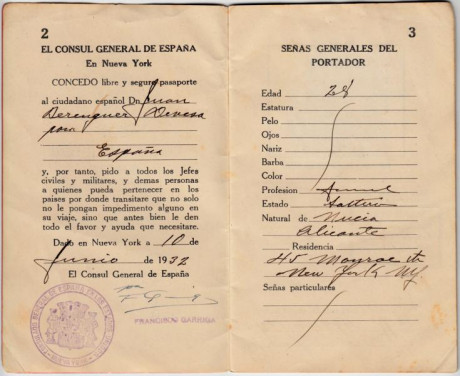 2
EL CONSUL GENERAL DE ESPAÑA
En Nueva York
CONCEDO libre y seguro pasaporte
al ciudadano español Dn. Juan
Berenguer Devesa
para
España
y, por tanto, pido a todos los Jefes
civiles y militares, y demas personas
a quienes pueda pertenecer en los
paises por donde transitare que no solo
no le pongan impedimento alguno en
su viaje, sino que antes bien le den
todo el favor y ayuda que necesitare.
Dado en Nueva York a 10 de
Junio de 1932
El Consul General de España
FRANCISCO
3
SEÑAS GENERALES DEL
PORTADOR
Edad 28
Estatura
Pelo
Ojos
Nariz
Barba
Color
Profesion
Estado Soltero
Natural de Nucia
Alicante
Residencia
45 Monroe St
New York NY.
Señas particulares